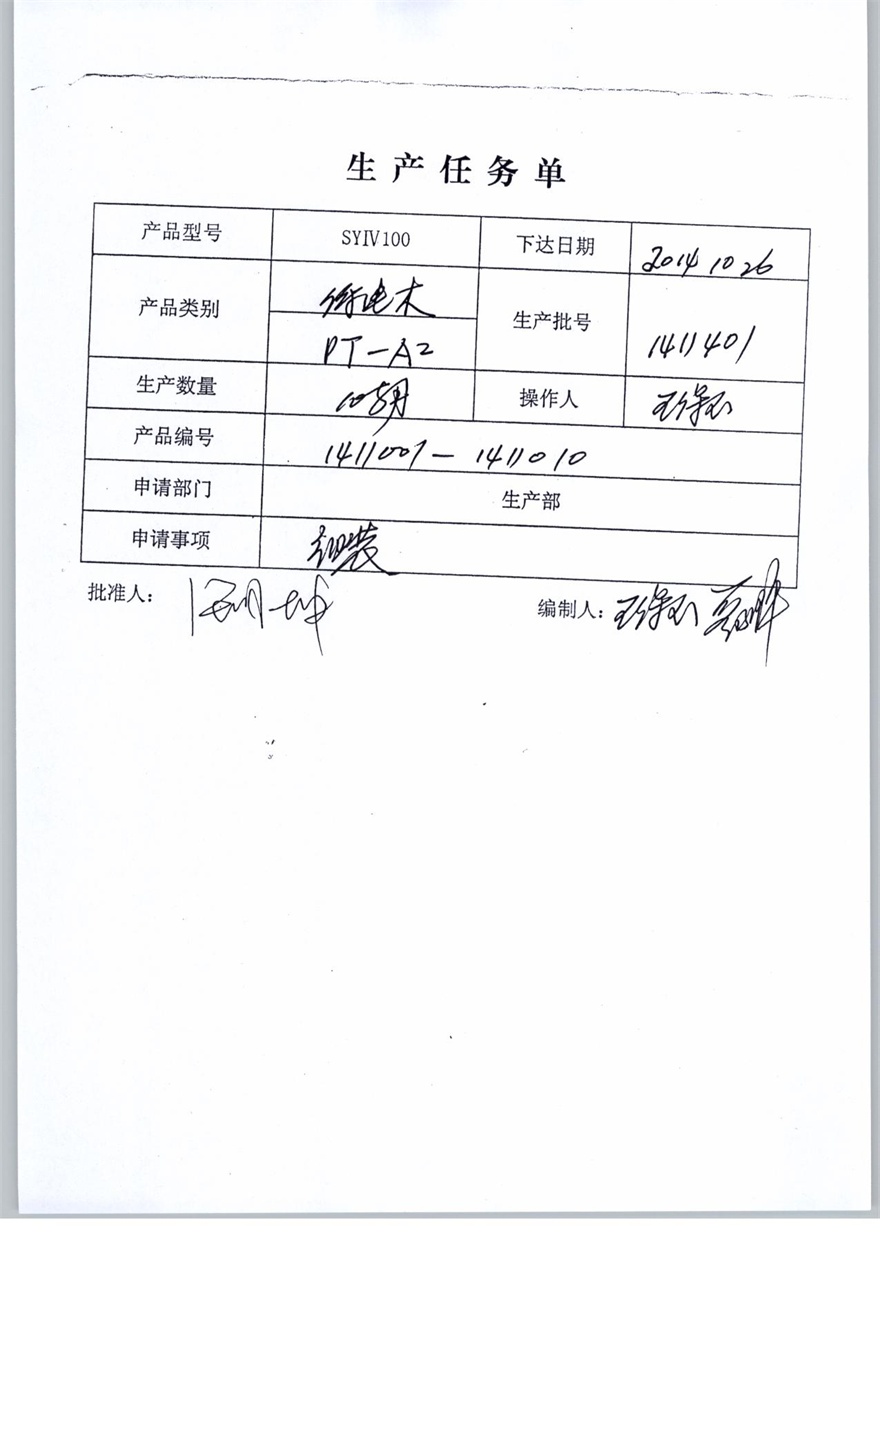 生产任务单
产品型号 SYIV100 下达日期 2014 10 26
产品类别 生产批号 1411401
PT-A2
生产数量 10 操作人 王保玉
产品编号 1411001-1411010
申请部门 生产部
申请事项 组装
批准人: 编制人: 王保玉